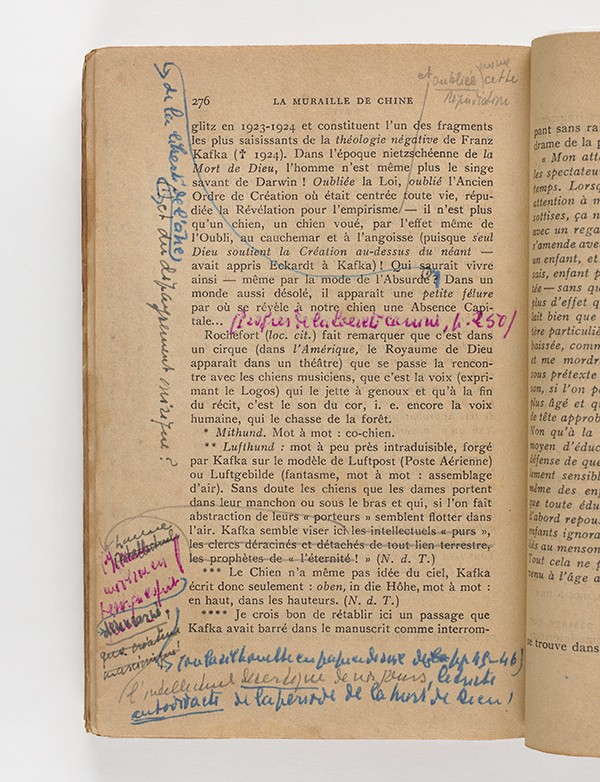 276 LA MURAILLE DE CHINE
et oubliée
cette
Répudiation
glitz en 1923-1924 et constituent l'un des fragments
les plus saisissants de la théologie négative de Franz
Kafka (✝ 1924). Dans l'époque nietzschéenne de la
Mort de Dieu, l'homme n'est même plus le singe
savant de Darwin ! Oubliée la Loi, oublié l'Ancien
Ordre de Création où était centrée toute vie, répu-
diée la Révélation pour l'empirisme — il n'est plus
qu'un chien, un chien voué, par l'effet même de
l'Oubli, au cauchemar et à l'angoisse (puisque seul
Dieu soutient la Création au-dessus du néant —
avait appris Eckardt à Kafka) ! Qui saurait vivre
ainsi — même par la mode de l'Absurde ? Dans un
monde aussi désolé, il apparaît une petite fêlure
par où se révèle à notre chien une Absence Capi-
tale...
p. 250)
Rochefort (loc. cit.) fait remarquer que c'est dans
un cirque (dans l'Amérique, le Royaume de Dieu
apparaît dans un théâtre) que se passe la rencon-
tre avec les chiens musiciens, que c'est la voix (expri-
mant le Logos) qui le jette à genoux et qu'à la fin
du récit, c'est le son du cor, i. e. encore la voix
humaine, qui le chasse de la forêt.
* Mithund. Mot à mot : co-chien.
** Lufthund : mot à peu près intraduisible, forgé
par Kafka sur le modèle de Luftpost (Poste Aérienne)
ou Luftgebilde (fantasme, mot à mot : assemblage
d'air). Sans doute les chiens que les dames portent
dans leur manchon ou sous le bras et qui, si l'on fait
abstraction de leurs « porteurs » semblent flotter dans
l'air. Kafka semble viser ici les intellectuels « purs »,
les clercs déracinés et détachés de tout lien terrestre,
les prophètes de « l'éternité ! » (N. d. T.)
*** Le Chien n'a même pas idée du ciel, Kafka
écrit donc seulement : oben, in die Höhe, mot à mot :
en haut, dans les hauteurs. (N. d. T.)
**** Je crois bon de rétablir ici un passage que
Kafka avait barré dans le manuscrit comme interrom-
de la liberté de l'âne
et du dépaysement onirique ?
(ou la silhouette en papier de soie de pp. 45-46)
(l'intellectuel de nos jours, le
autodidacte de la période de la Mort de Dieu !
pant sans ra
drame de la p
« Mon att
les spectateu
temps. Lorsq
attention à m
sottises, ça n
avec un rega
s'amende avec
un enfant, et
sois, enfant p
tée — sans qu
plus d'effet q
lait bien que
tère particuliè
baissée, comm
et me mordr
sous prétexte
son, si l'on p
plus âgé et qu
de tête approb
Non qu'à la
moyen d'éduc
défense de que
ement sensibl
même des enf
que toute édu
d'abord repous
enfants ignora
iés au menson
Tout cela ne f
venu à l'âge a
se trouve dans